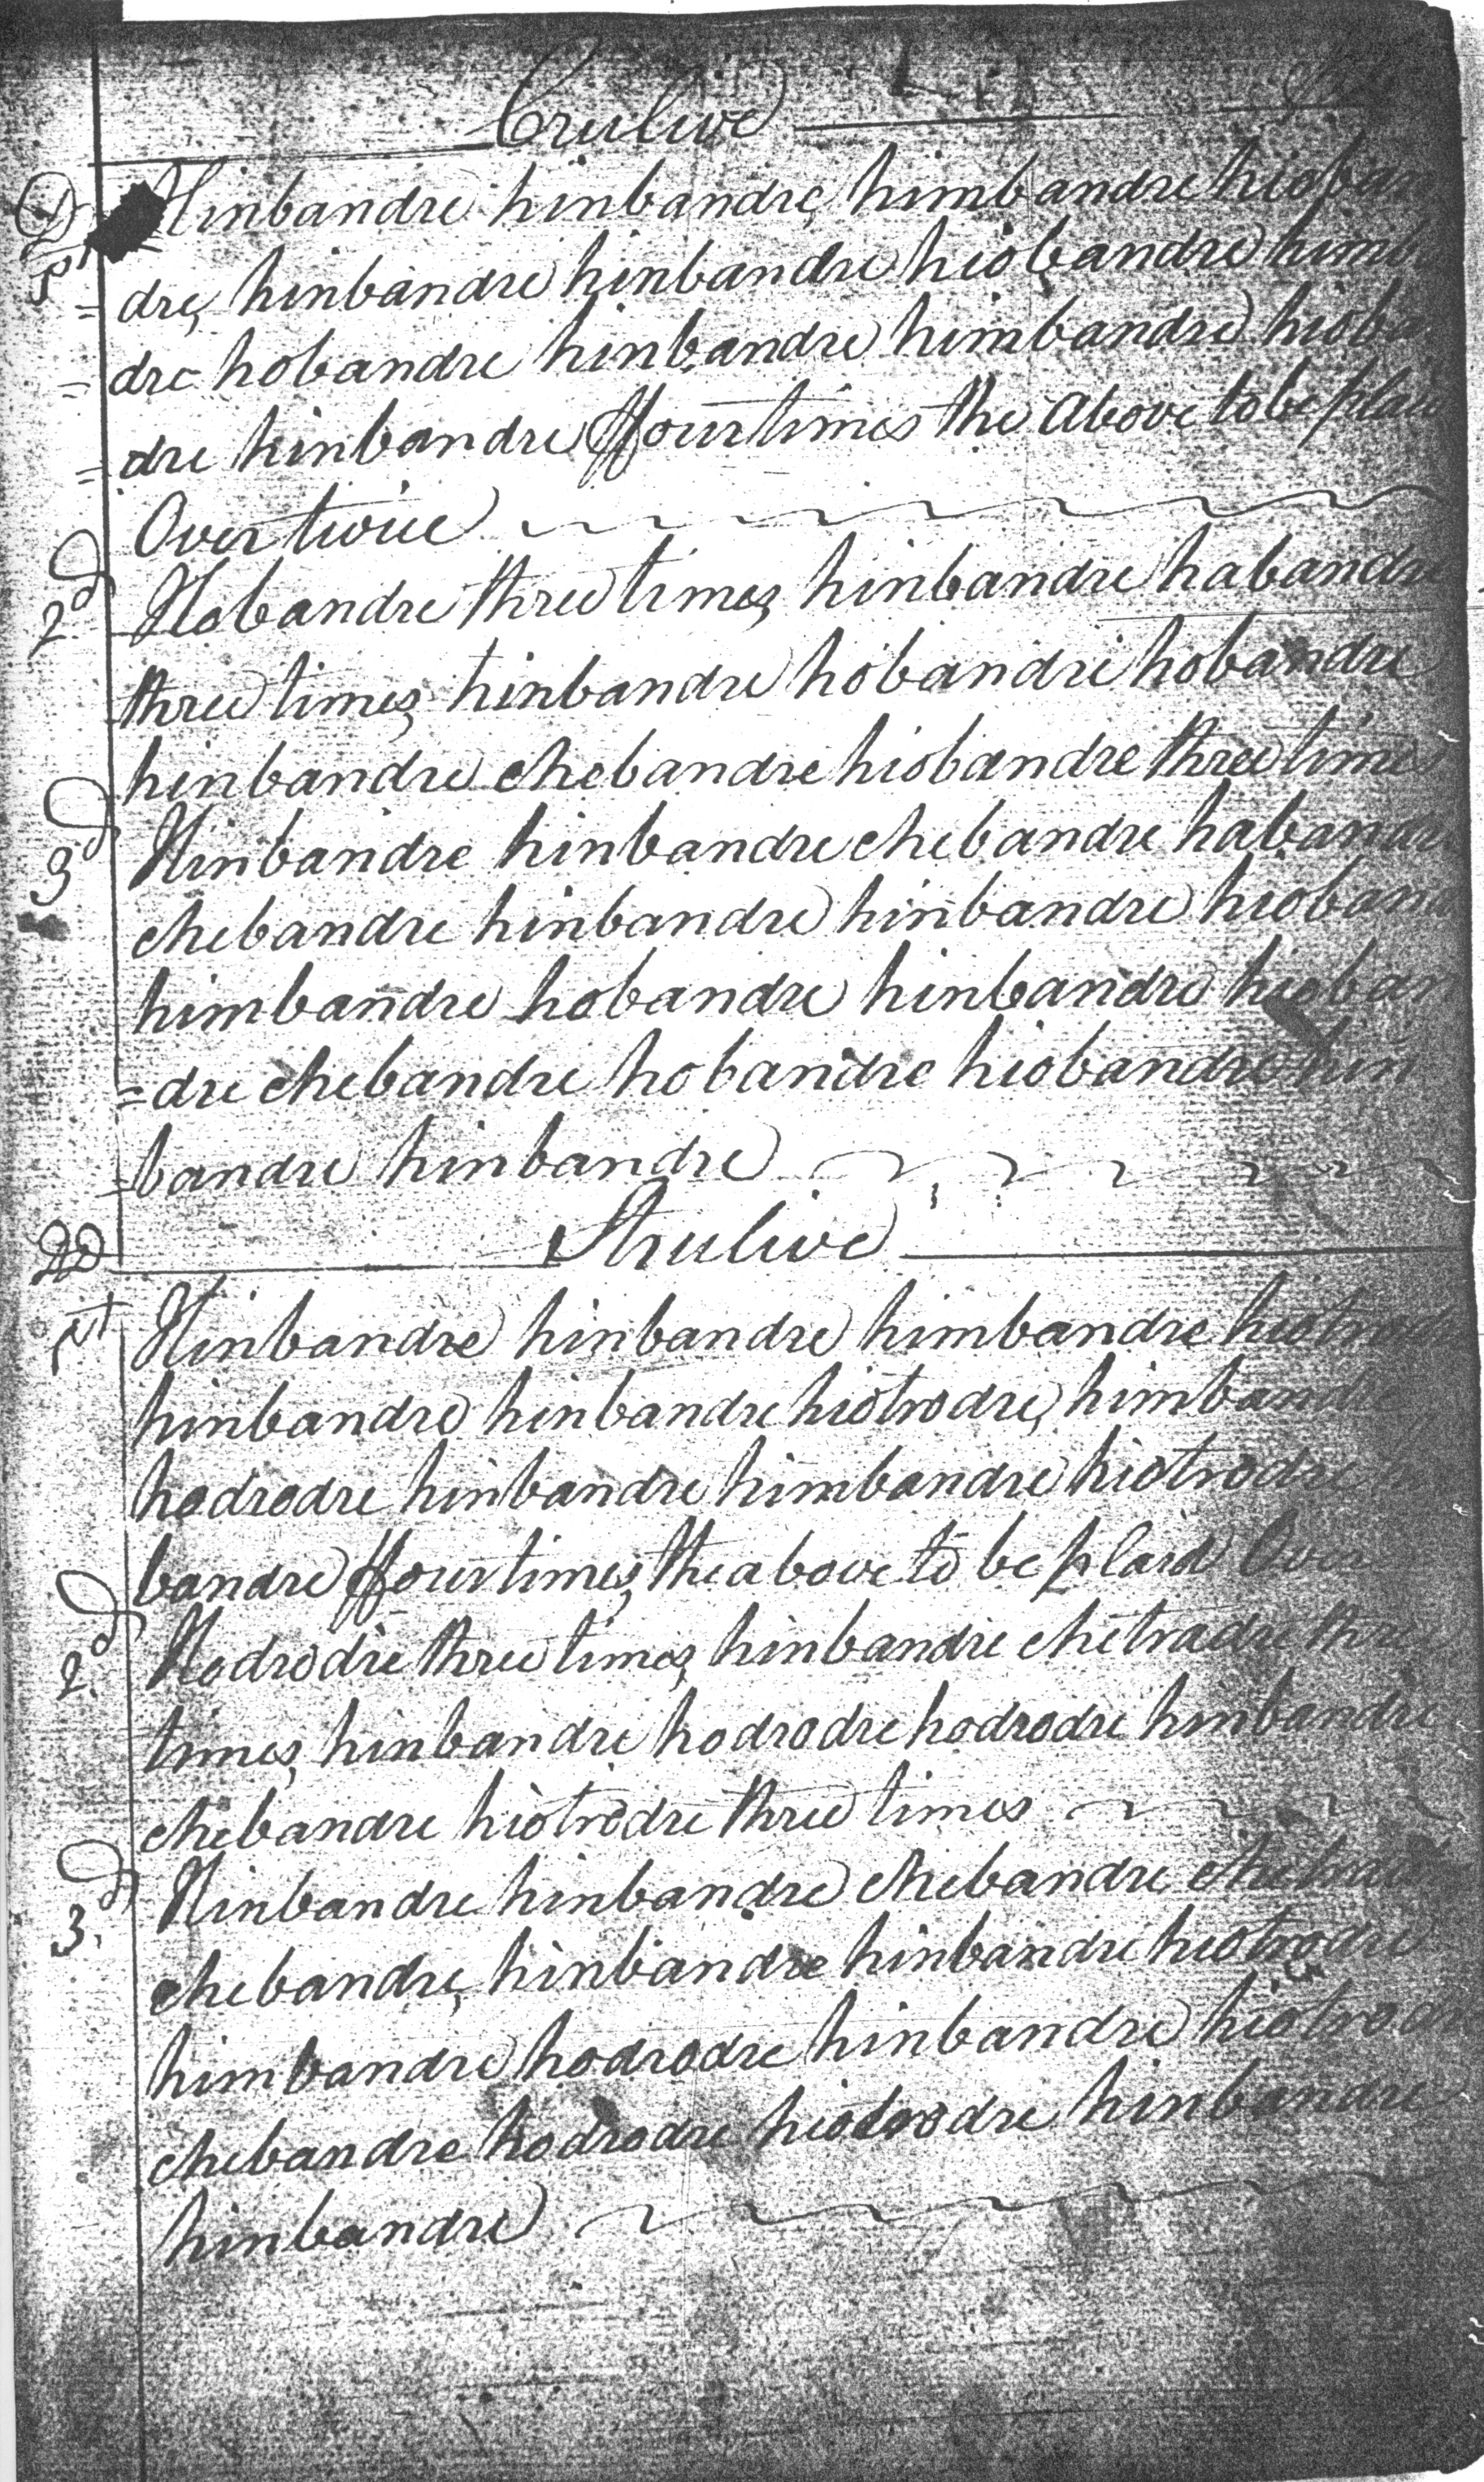 Crulive
D Hinbandre hinbandre, himbandre hioban
1st =dre, hinbandre hinbandre hiobandre himb
=dre hobandre hinbandre himbandre hioba
=dre hinbandre ffour times the above to be plaid
Over twice
2d Hobandre three times, hinbandre habandre
three times, hinbandre hobandre hobandre
hinbandre chebandre hiobandre three times
3d Hinbandre hinbandre chebandre habandre
chebandre hinbandre hinbandre hioband
himbandre hobandre hinbandre hioban
=dre chebandre hobandre hiobandre hin
=bandre hinbandre
Trulive
1st Hinbandre hinbandre himbandre hiotrod
hinbandre hinbandre hiotrodre, himbandre
hodrodre hinbandre himbandre hiotrodre
bandre ffour times, the above to be plaid Ove
2d Hodrodre three times, hinbandre chetradre three
times, hinbandre hodrodre hodrodre hinbandre
chebandre hiotrodre three times
3d Hinbandre hinbandre chebandre
chebandre, hinbandre hinbandre hiotrodre
himbandre hodrodre hinbandre hiotrodre
chebandre hodrodre hiotrodre hinbandre
hinbandre